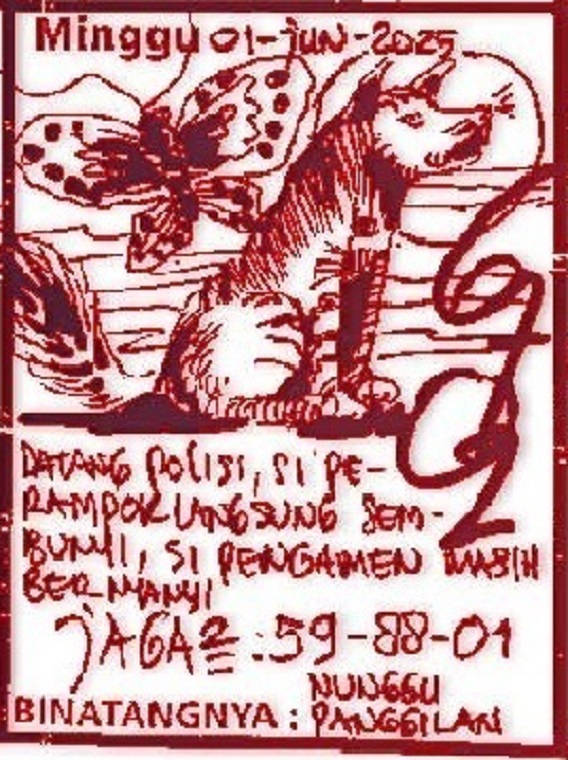 Minggu 01-JUN-2025
DATANG POLISI, SI PE-
RAMPOK LANGSUNG SEM-
BUNYI, SI PENGAMEN MASIH
BERNANYI
JAGA2 : 59-88-01
NUNGGU
BINATANGNYA : PANGGILAN